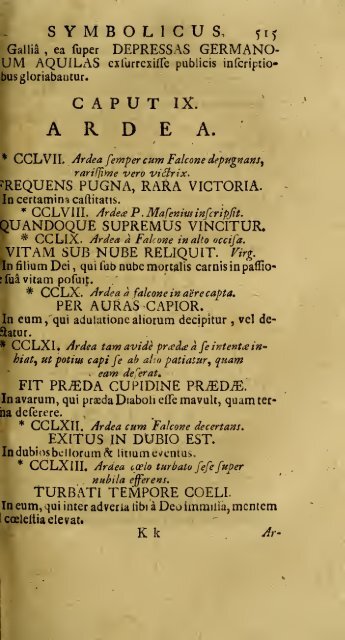 SYMBOLICUS, 515
Galliâ, ea super DEPRESSAS GERMANO-
UM AQUILAS exsurrexisse publicis inscriptio-
bus gloriabantur.
CAPUT IX.
ARDEA.
* CCLVII. Ardea semper cum Falcone depugnans,
rarissime vero victrix.
FREQUENS PUGNA, RARA VICTORIA.
In certamina castitatis.
* CCLVIII. Ardeæ P. Masenius inscripsit.
QUANDOQUE SUPREMUS VINCITUR.
* CCLIX. Ardea à Falcone in alto occisa.
VITAM SUB NUBE RELIQUIT. Virg.
In filium Dei, qui sub nube mortalis carnis in passio-
e suâ vitam posuit.
* CCLX. Ardea à falcone in aëre capta.
PER AURAS CAPIOR.
In eum, qui adulatione aliorum decipitur, vel de-
ctatur.
* CCLXI. Ardea tam avidè prædæ à se intentæ in-
hiat, ut potius capi se ab alio patiatur, quam
eam deserat.
FIT PRÆDA CUPIDINE PRÆDÆ.
In avarum, qui præda Diaboli esse mavult, quam ter-
na deserere.
* CCLXII. Ardea cum Falcone decertans.
EXITUS IN DUBIO EST.
In dubios bellorum & litium eventus.
* CCLXIII. Ardea cœlo turbato sese super
nubila efferens.
TURBATI TEMPORE COELI.
In eum, qui inter adversa sibi à Deo immissa, mentem
cœlestia elevat.
K k Ar-